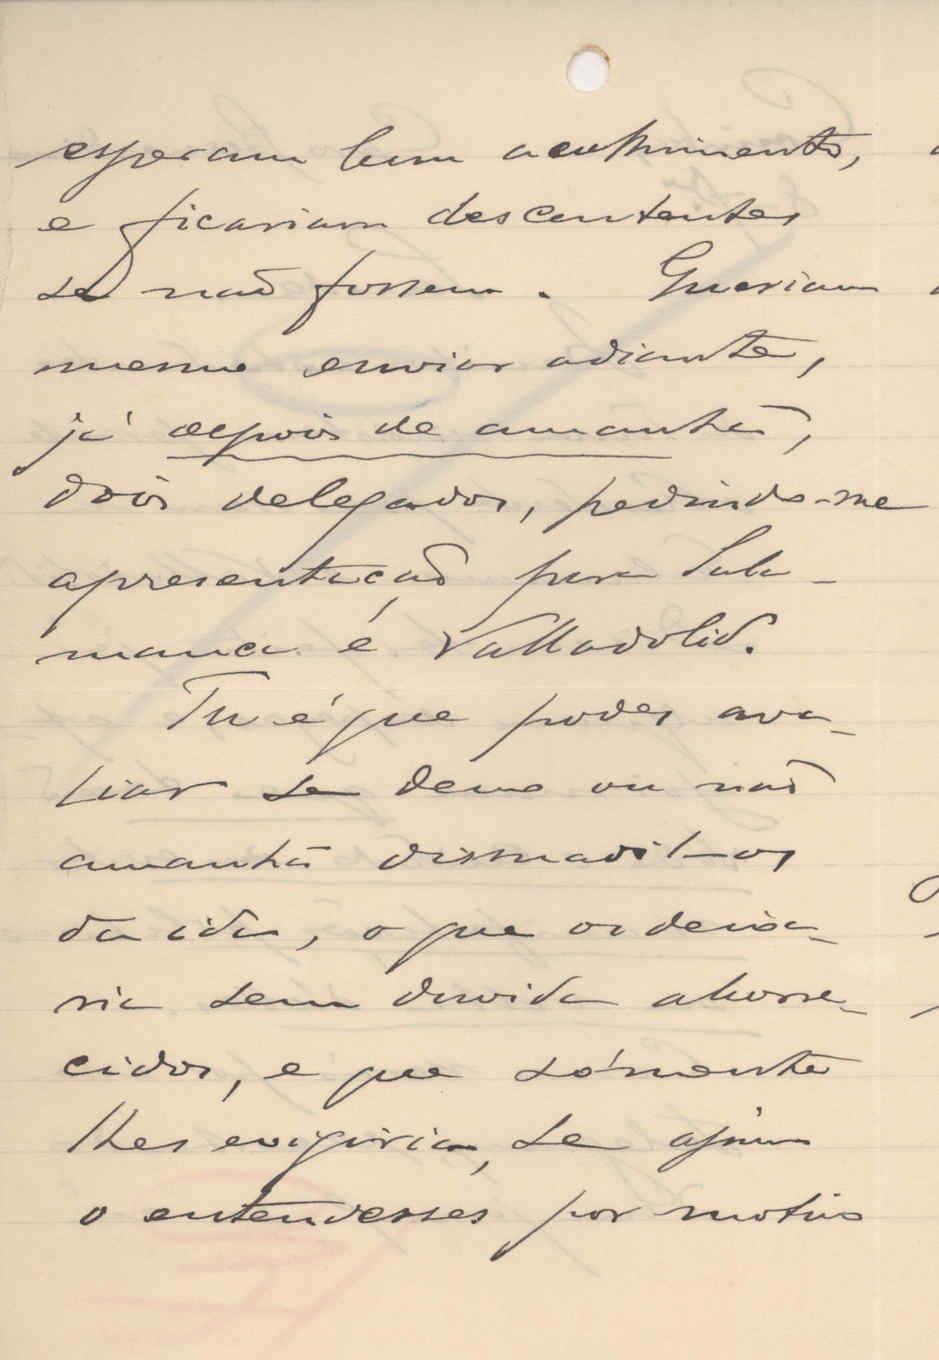 esperam bom acolhimento,
e ficariam descontentes
se não fossem. Queriam
mesmo enviar adiante,
já depois de amanhã,
dois delegados, pedindo-me
apresentação para Sala-
manca e Valladolid.
Tu é que podes ava-
liar se devo ou não
amanhã dissuadil-os
da ida, o que os deixa-
ria sem duvida aborre-
cidos, e que sómente
lhes exigiria, se assim
o entendesses por motivo